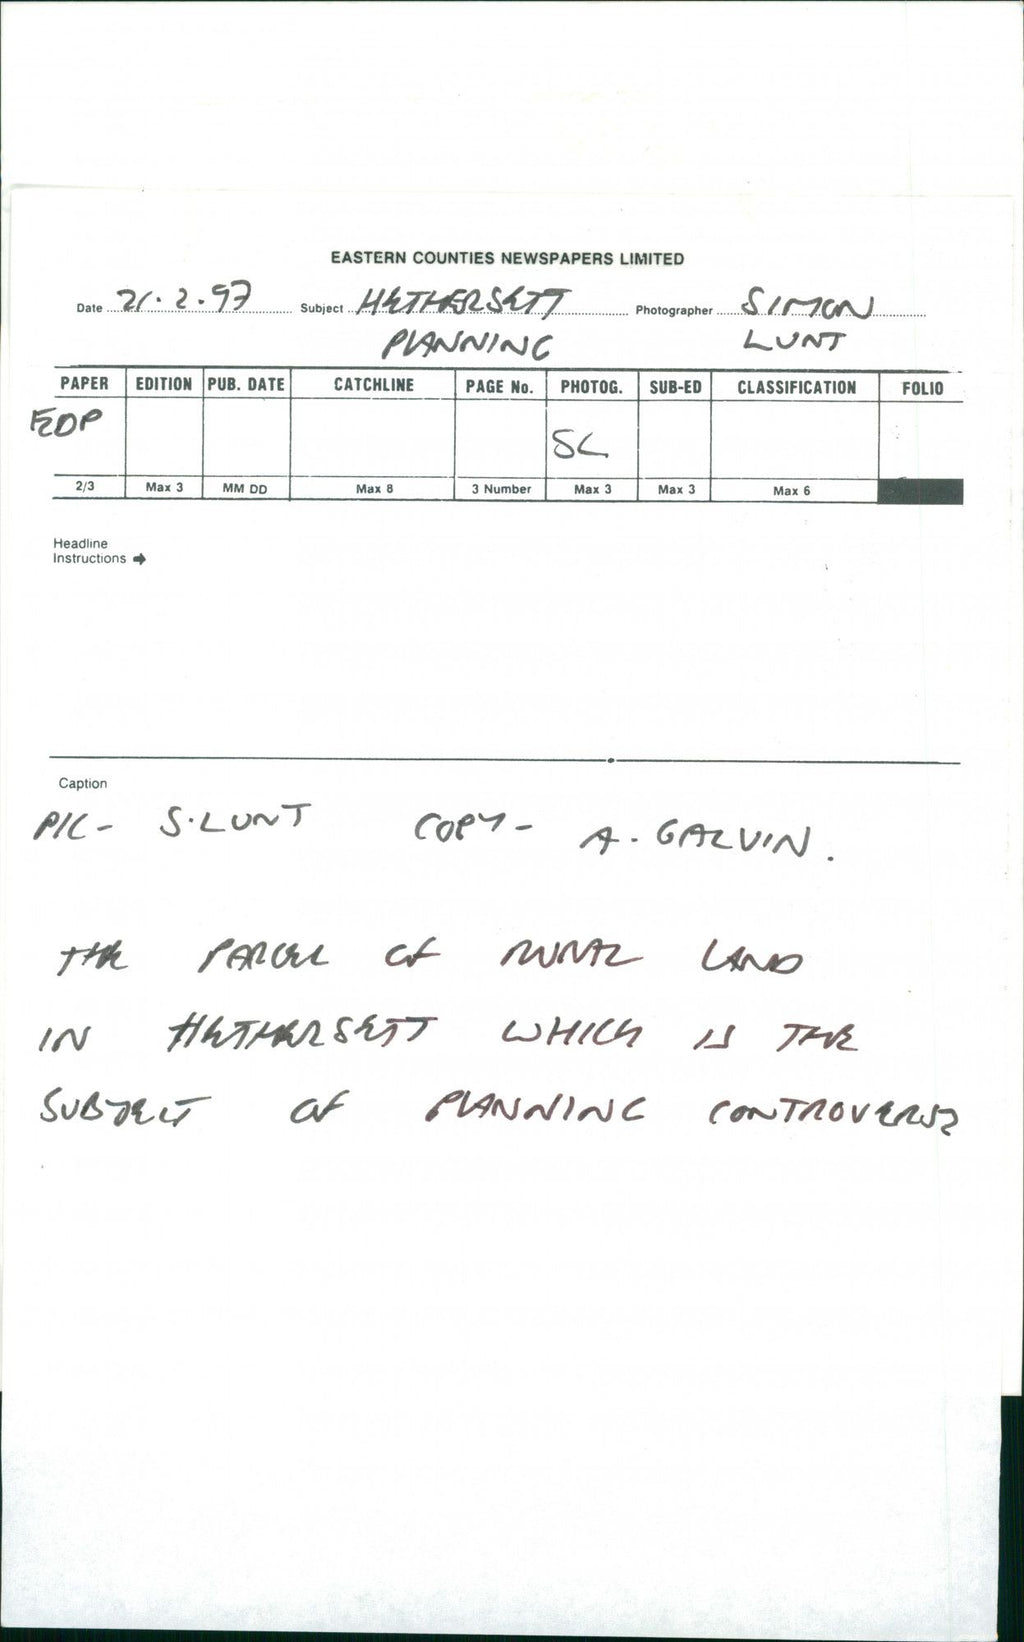 EASTERN COUNTIES NEWSPAPERS LIMITED
Date 21.2.97 Subject HETHERSETT Photographer SIMON
PLANNING LUNT
PAPER EDITION PUB. DATE CATCHLINE PAGE No. PHOTOG. SUB-ED CLASSIFICATION FOLIO
EDP SL
2/3 Max 3 MM DD Max 8 3 Number Max 3 Max 3 Max 6
Headline
Instructions ➔
Caption
PIC- S.LUNT COPY- A. GALVIN.
THE PARCEL OF RURAL LAND
IN HETHERSETT WHICH IS THE
SUBJECT OF PLANNING CONTROVERSY